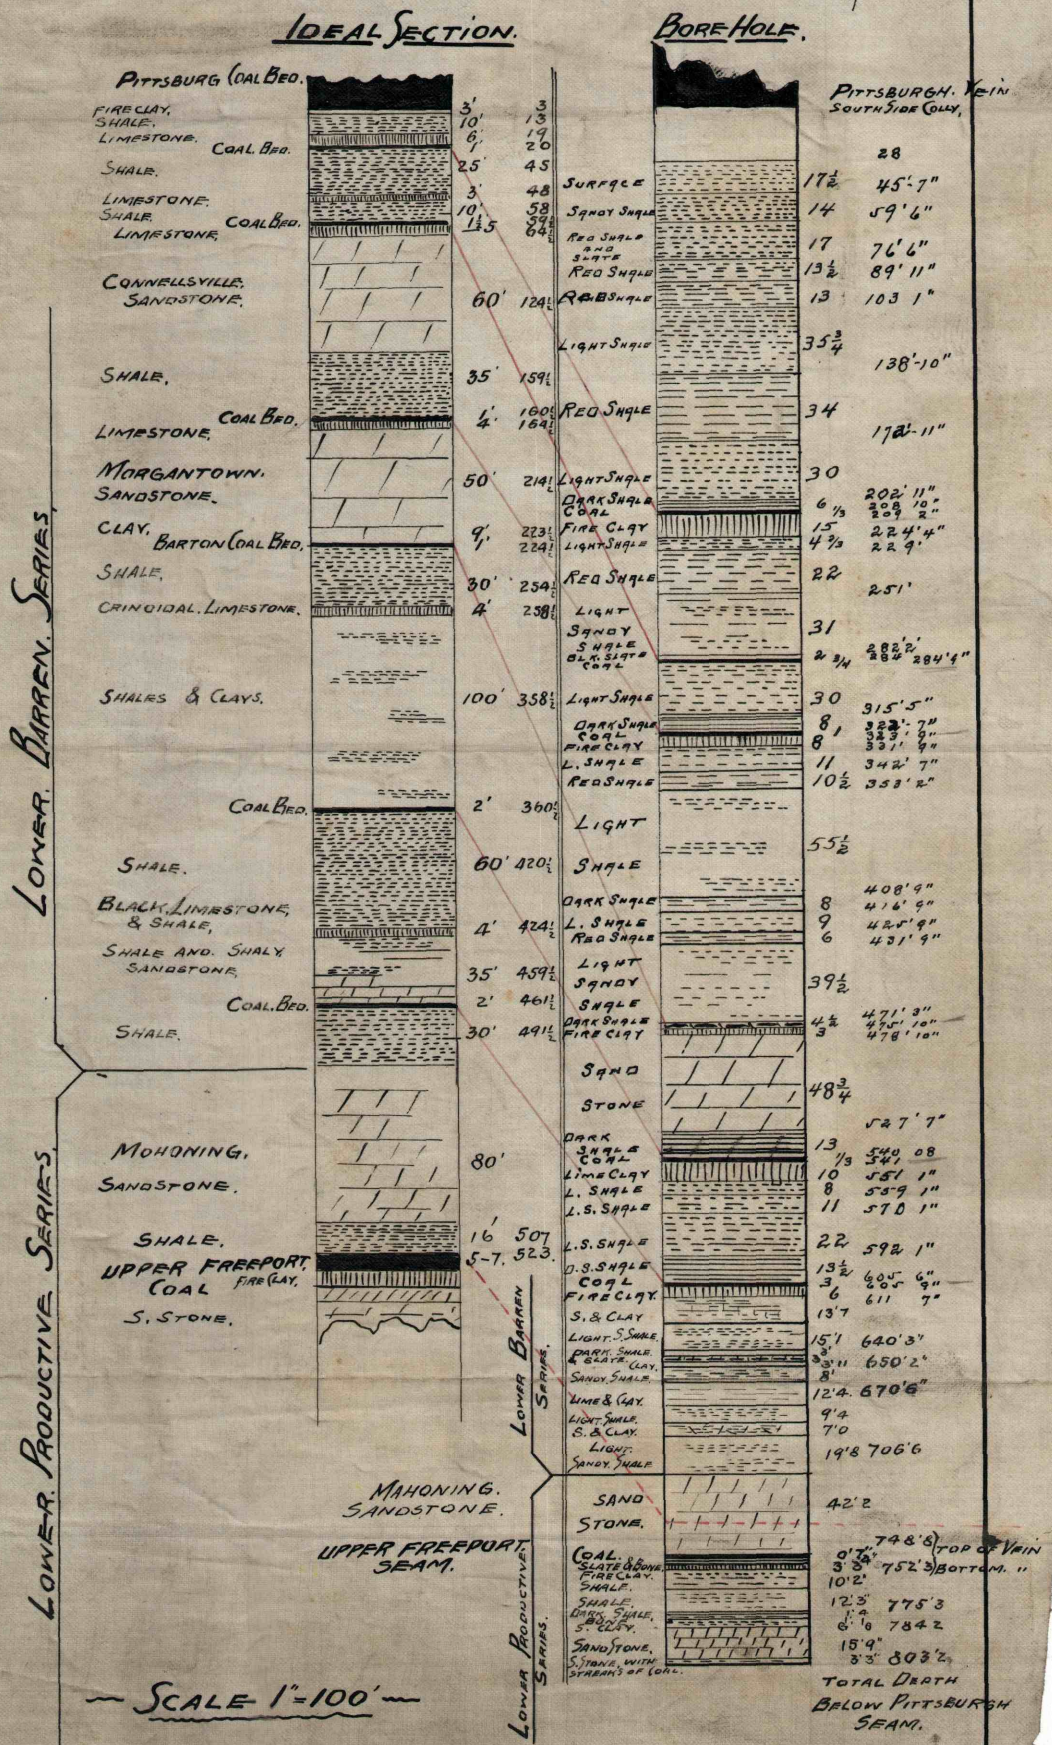 IDEAL SECTION.
PITTSBURG COAL BED.
FIRE CLAY. 3' 3
SHALE. 10' 13
LIMESTONE. 6' 19
COAL. BED. 1' 20
SHALE. 25' 45
LIMESTONE. 3' 48
SHALE. 10' 58
COAL BED. 1½
LIMESTONE, 5 64½
CONNELLSVILLE.
SANDSTONE. 60' 124½
SHALE. 35' 159½
COAL BED. 1' 160½
LIMESTONE, 4' 164½
MORGANTOWN.
SANDSTONE. 50' 214½
CLAY. 9' 223½
BARTON COAL BED. 1' 224½
SHALE, 30' 254½
CRINOIDAL. LIMESTONE. 4' 258½
SHALES & CLAYS. 100' 358½
COAL BED. 2' 360½
SHALE. 60' 420½
BLACK, LIMESTONE,
& SHALE, 4' 424½
SHALE AND. SHALY
SANDSTONE, 35' 459½
COAL. BED. 2' 461½
SHALE. 30' 491½
MOHONING.
SANDSTONE. 80'
SHALE. 16' 507
UPPER FREEPORT. 5-7. 523.
COAL FIRE CLAY.
S. STONE.
LOWER. BARREN. SERIES.
LOWER. PRODUCTIVE SERIES.
MAHONING.
SANDSTONE.
UPPER FREEPORT.
SEAM.
SCALE 1"=100'
BORE HOLE.
PITTSBURGH. VEIN
SOUTH SIDE COLLY,
28
SURFACE 17½ 45'-7"
SANDY SHALE 14 59'6"
RED SHALE
AND
SLATE 17 76'6"
RED SHALE 13½ 89'11"
RED SHALE 13 103 1"
LIGHT SHALE 35¾ 138'-10"
RED SHALE 34 172'-11"
LIGHT SHALE 30 202' 11"
DARK SHALE 6 208 10"
COAL ⅓ 209 2"
FIRE CLAY 15 224'4"
LIGHT SHALE 4⅔ 229'
RED SHALE 22 251'
LIGHT
SANDY
SHALE 31 282'2'
BLK. SLATE
COAL 2 ¾ 284' 284'9"
LIGHT SHALE 30 315'5"
DARK SHALE 8, 7"
COAL 1 323' 9"
FIRE CLAY 8 331' 9"
L. SHALE 11 342' 7"
RED SHALE 10½ 353'2"
LIGHT
SHALE 55½ 408'9"
DARK SHALE 8 416'9"
L. SHALE 9 425'9"
RED SHALE 6 431'9"
LIGHT
SANDY
SHALE 39½ 471'3"
DARK SHALE 4½ 475'10"
FIRE CLAY 3 478'10"
SAND
STONE 48¾ 527'7"
DARK
SHALE 13 540 08
COAL ⅓ 541
LIME CLAY 10 551 1"
L. SHALE 8 559 1"
L.S. SHALE 11 570 1"
L.S. SHALE 22 592 1"
D.S. SHALE 13½ 605 6"
COAL 3 605 9"
FIRE CLAY. 6 611 7"
S. & CLAY 13'7
LIGHT. S. SHALE. 15'1 640'3"
DARK. SHALE.
& SLATE. CLAY. 650'2"
SANDY. SHALE 8'
LIME & CLAY. 12'4. 670'6"
LIGHT SHALE. 9'4
S. & CLAY. 7'0
LIGHT.
SANDY. SHALE 19'8 706'6
SAND
STONE. 42'2
748'8 TOP OF VEIN
COAL. 0'7"
SLATE & BONE. 3'3" 752'3 BOTTOM. "
FIRE CLAY.
SHALE. 10'2"
SHALE. 12'3" 775'3
DARK SHALE,
S. CLAY. 784 2
SANDSTONE. 15'9"
S. STONE, WITH 3'3" 803'2
STREAKS OF COAL.
TOTAL DEPTH
BELOW PITTSBURGH
SEAM.
LOWER BARREN
SERIES.
LOWER PRODUCTIVE
SERIES.